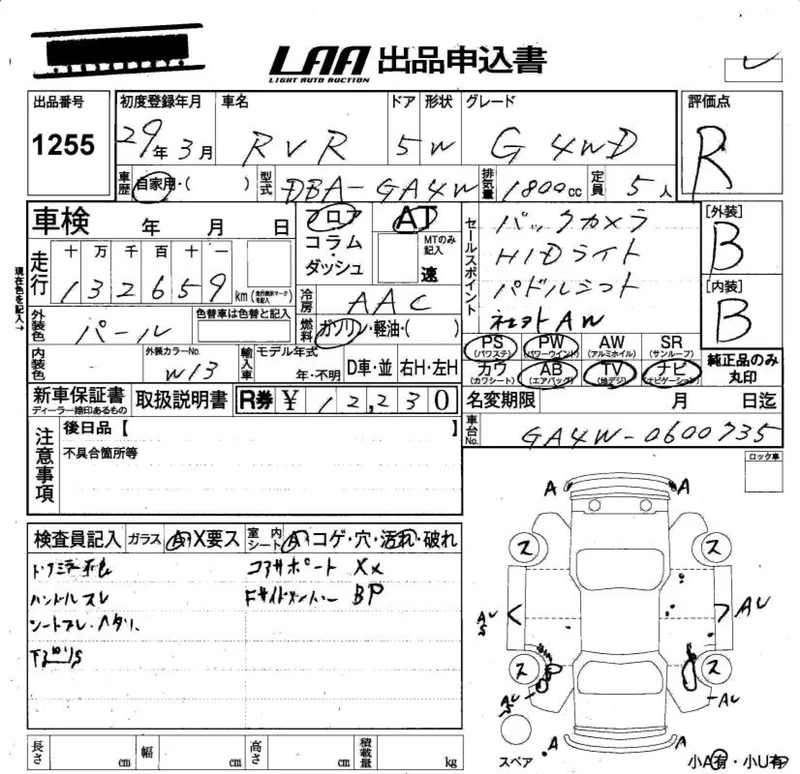 LAA 出品申込書
LIGHT AUTO AUCTION
出品番号 初度登録年月 車名 ドア 形状 グレード 評価点
1255 29年 3月 RVR 5 W G 4WD R
車歴 自家用・( ) 型式 DBA-GA4W 排気量 1800cc 定員 5人
車検 年 月 日 フロア AT セールスポイント バックカメラ [外装]
コラム・ MTのみ記入 HIDライト B
ダッシュ 速 パドルシフト
現在色を記入→
走行 十 万 千 百 十 一
132659 km (走行距離マークを記入)
冷房 AAC 社外AW [内装]
外装色 パール 色替車は色替と記入 燃料 ガソリン・軽油・( ) B
PS PW AW SR
(パワステ) (パワーウインド) (アルミホイル) (サンルーフ)
カワ AB TV ナビ 純正品のみ
(カワシート) (エアバッグ) (地デジ) (ナビゲーション) 丸印
内装色 外装カラーNo. W13 輸入車 モデル年式 年・不明 D車・並 右H・左H
新車保証書 取扱説明書 R券 ¥ 12,230 名変期限 月 日迄
ディーラー捺印あるもの
車台No. GA4W-0600735
注意事項 後日品【 】
不具合箇所等
ロック車
検査員記入 ガラス A・X要ス 室内シート A・コゲ・穴・汚れ・破れ
コアサポート XX
ハンドルスレ BP
A A
ス ス
AU
S
AU
ス ス
AU
S
AU
A
スペア
長さ cm 幅 cm 高さ cm 積載量 kg 小A有・小U有